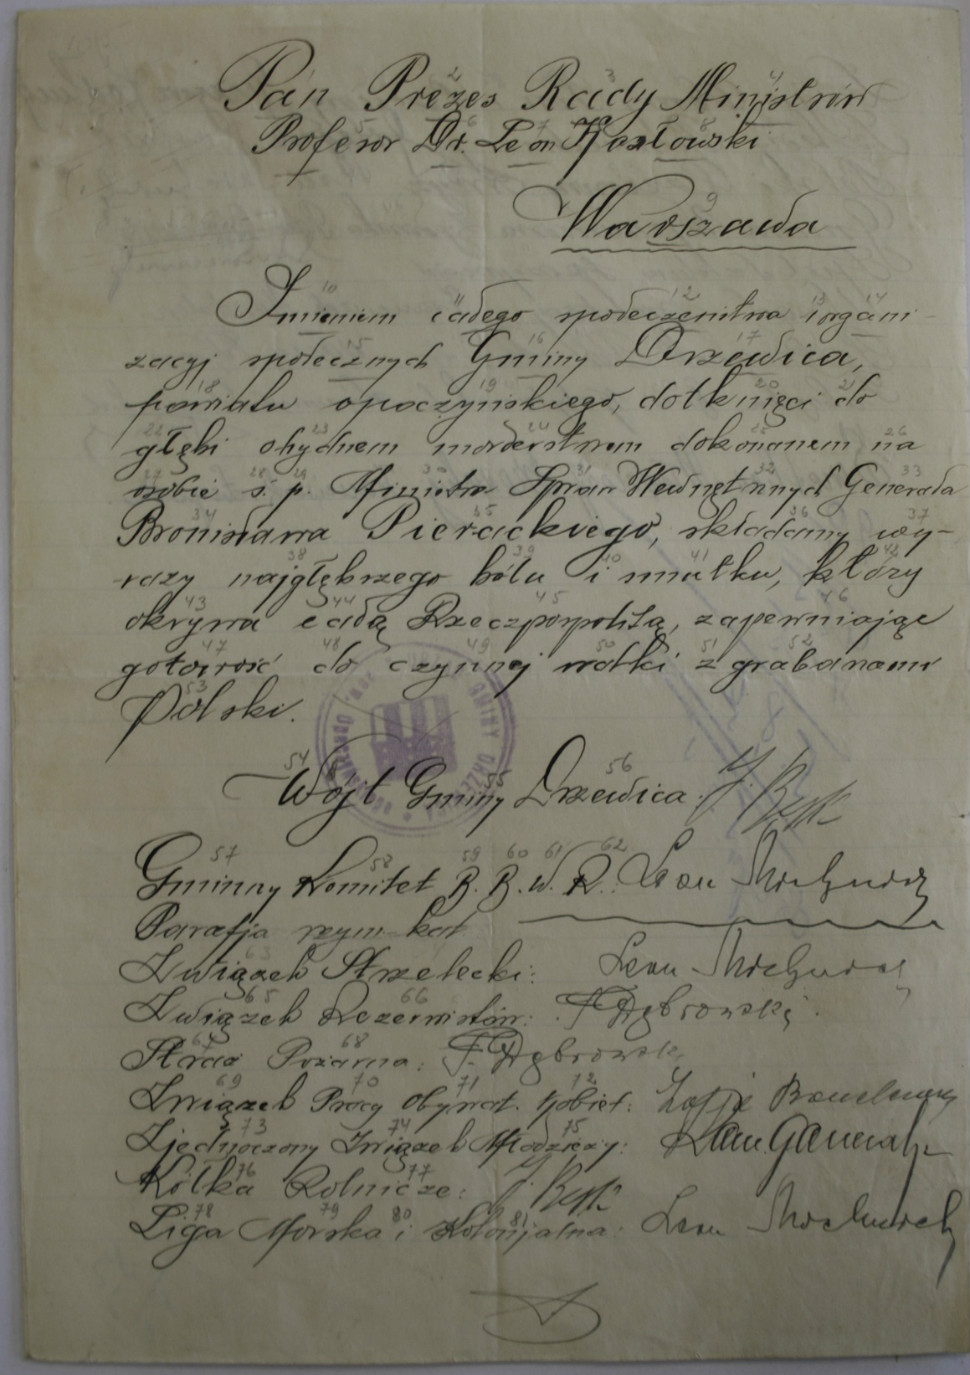 Pan Prezes Rady Ministrów
Profesor Dr. Leon Kozłowski
Warszawa
Imieniem całego społeczeństwa i organi-
zacyj społecznych Gminy Drzewica,
powiatu opoczyńskiego, dotknięci do
głębi ohydnem morderstwem dokonanem na
osobie ś. p. Ministra Spraw Wewnętrznych Generała
Bronisława Pierackiego, składamy wy-
razy najgłębszego bólu i smutku, który
okrywa całą Rzeczpospolitą, zapewniając
gotowość do czynnej walki z grabarzami
Polski.
Wójt Gminy Drzewica:
Gminny Komitet B. B. W. R.: Leon
Parafja rzym kat
Związek Strzelecki: Leon
Związek Rezerwistów: F Dąbrowski
Straż Pożarna: F. Dąbrowski
Związek Pracy Obywat. Kobiet:
Zjednoczony Związek Młodzieży:
Kółka Rolnicze:
Liga Morska i Kolonjalna: Leon
GMINY DRZEWICA